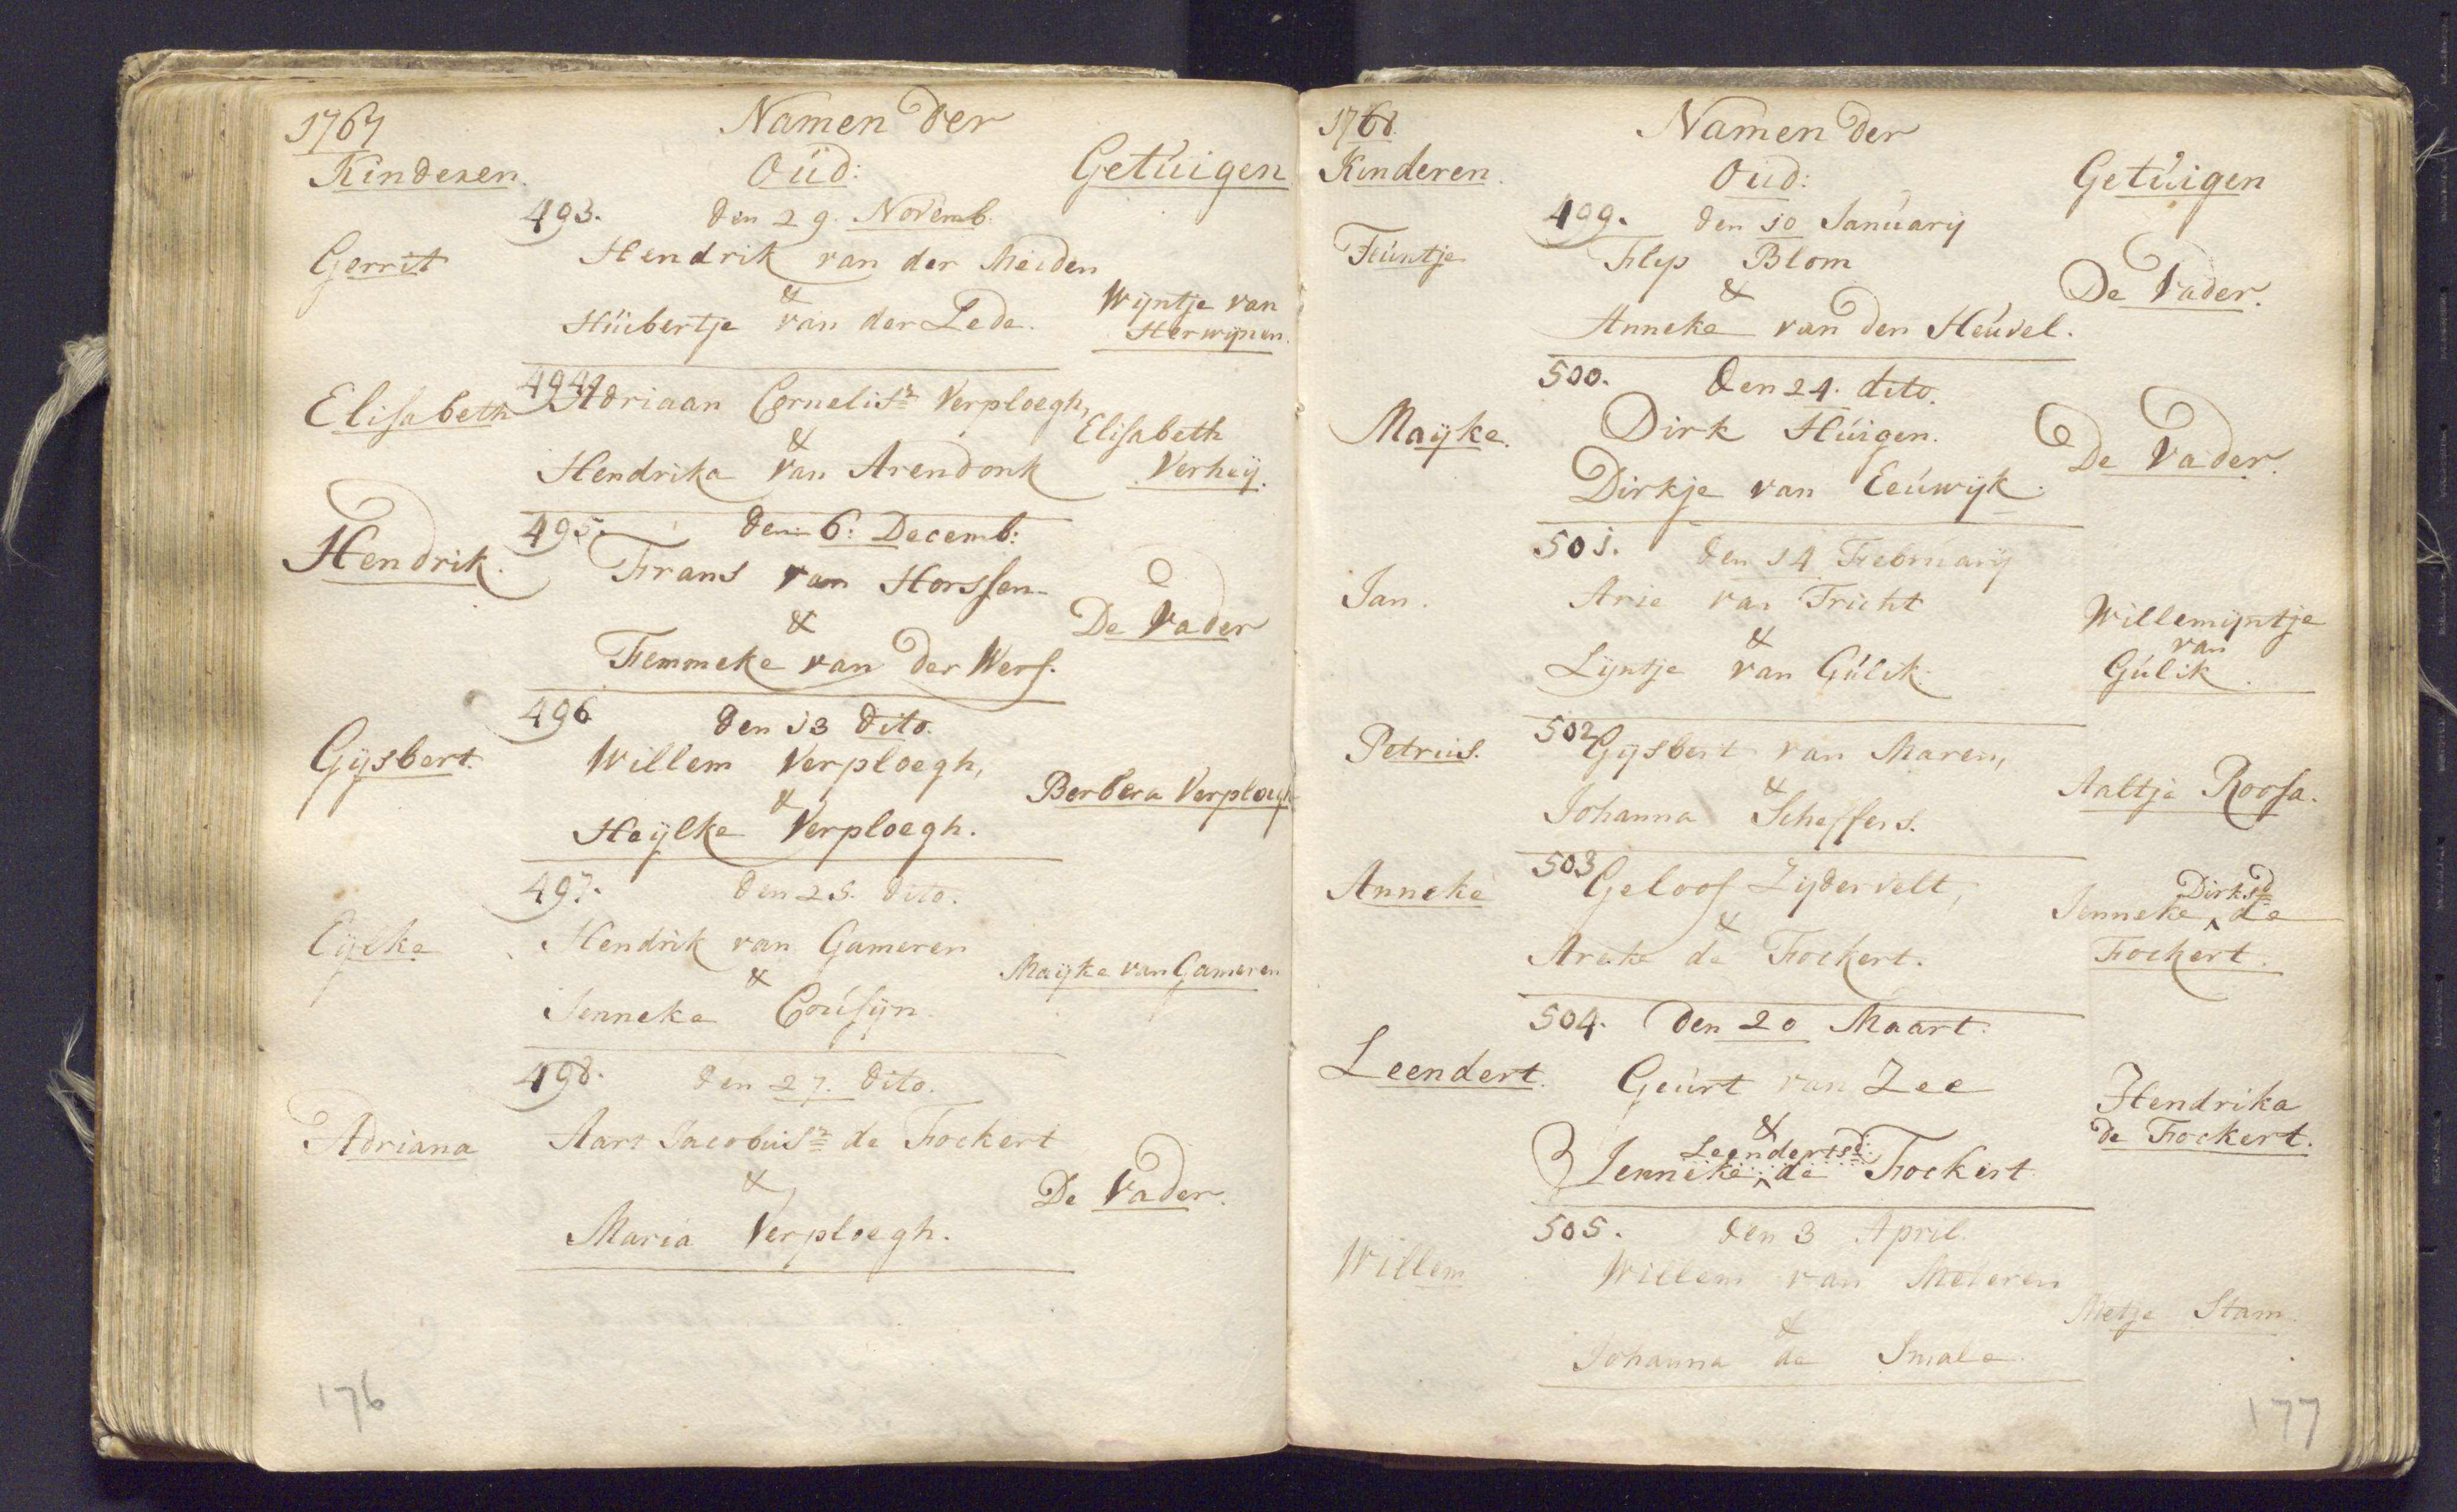 1767
Namen der
Kinderen.
Oud:
Getuigen
493. den 29. Novemb.
Gerrit
Hendrik van der Meiden
&
Wijntje van
Huibertje van der Lede.
Herwijnen.
494.
Elisabeth
Adriaan Cornelisz Verploegh,
&
Elisabeth
Hendrika van Arendonk
Verheij.
495. den 6: Decemb:
Hendrik.
Frans van Horssen
&
De Vader
Femmeke van der Werf.
496. den 13 dito.
Gijsbert.
Willem Verploegh,
&
Berbera Verploegh
Heijlke Verploegh.
497. den 25. dito.
Eijke
Hendrik van Gameren
&
Maijke van Gameren
Jenneke Cousijn.
498. den 27. dito.
Adriana
Aart Jacobusz de Fockert
&
De Vader.
Maria Verploegh.
176
1768.
Namen der
Kinderen.
Oud:
Getuigen
499. den 10 January
Teuntje
Flip Blom
&
De Vader.
Anneke van den Heuvel.
500. den 24. dito.
Maijke.
Dirk Huigen.
De Vader.
Dirkje van Eeuwijk.
501. den 14 February
Jan.
Arie van Tricht
&
Willemijntje
van
Lijntje van Gulik.
Gulik.
502
Petrus.
Gijsbert van Maren,
&
Aaltje Roosa.
Johanna Scheffers.
503
Anneke
Geloof Zijdervelt,
&
Dirksd
Jenneke ^ de
Areke de Fockert.
Fockert.
504. den 20 Maart.
Leendert.
Geurt van Zee
&
Hendrika
Leendertsd:
Jenneke ^ de Fockert
de Fockert.
505. den 3 April.
Willem
Willem van Meteren
&
Metje Stam.
Johanna de Smale.
177